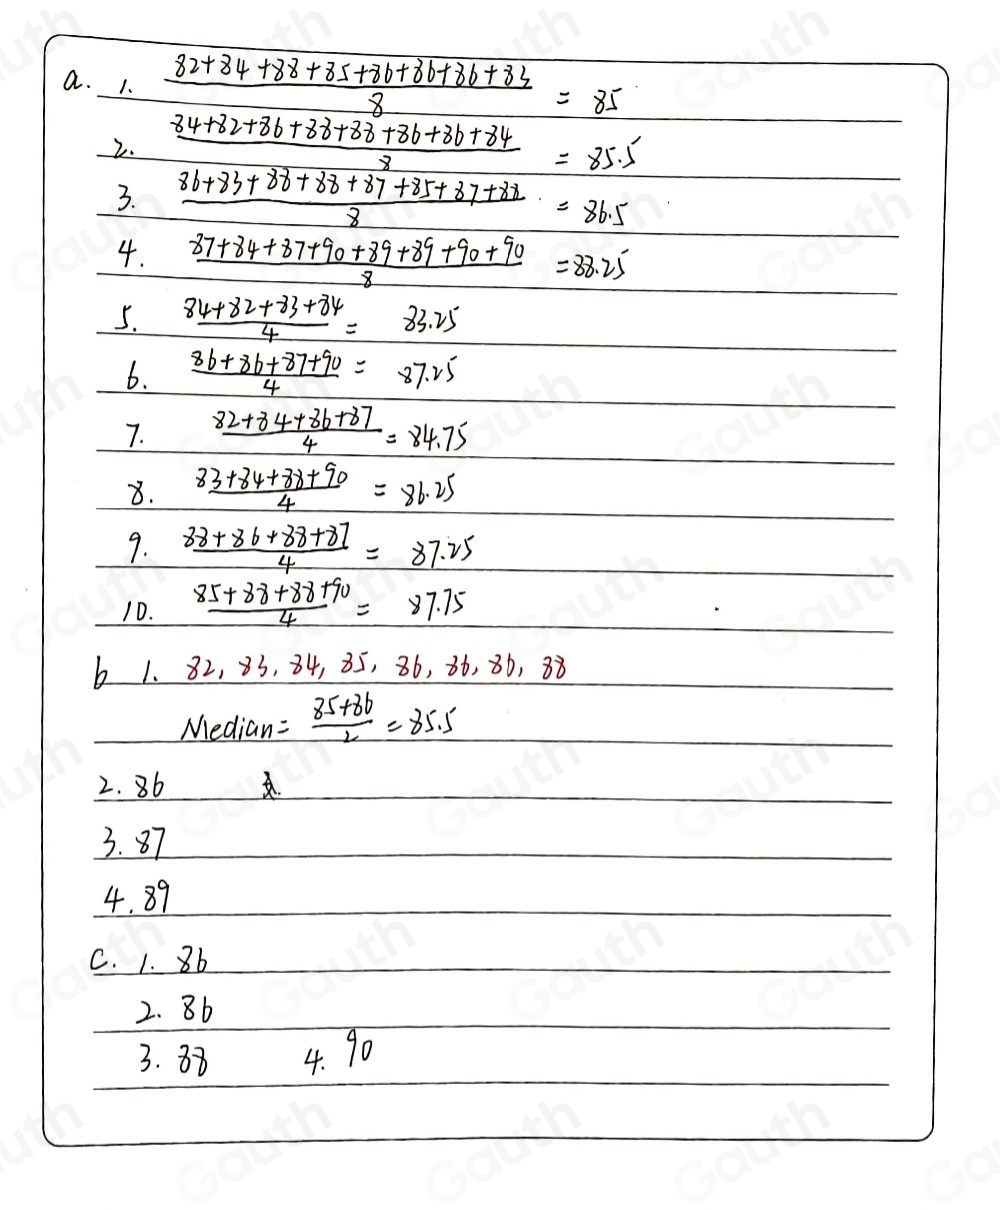 a. 1. (82+84+88+85+86+86+86+83)/8 = 85
2. (84+82+86+88+88+86+86+84)/8 = 85.5
3. (86+83+88+88+87+85+87+88)/8 = 86.5
4. (87+84+87+90+89+89+90+90)/8 =88.25
5. (84+82+83+84)/4 = 83.25
6. (86+86+87+90)/4 = 87.25
7. (82+84+86+87)/4 = 84.75
8. (83+84+88+90)/4 = 86.25
9. (88+86+88+87)/4 = 87.25
10. (85+88+88+90)/4 = 87.75
b 1. 82, 83, 84, 85, 86, 86, 86, 88
Median = (85+86)/2 = 85.5
2. 86
3. 87
4. 89
c. 1. 86
2. 86
3. 88 4. 90
Gauth